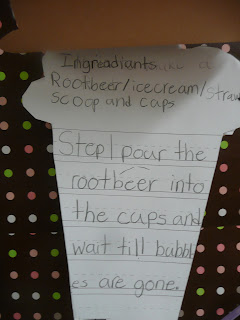 Ingreadiants
Rootbeer/icecream/straw
scoop and cups
Step 1 pour the
rootbeer into
the cups and
wait till babbl
es are gone.